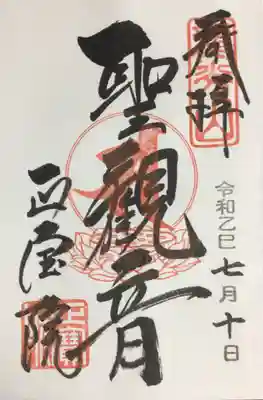 奉拝
令和乙巳 七月十日
聖觀音
正宝院